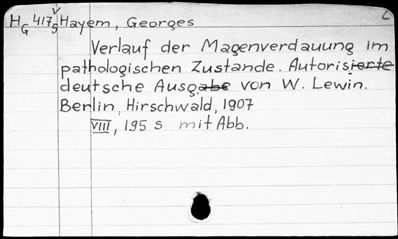 HG 417g Hayem, Georges
Verlauf der Magenverdauung im
pathologischen Zustande. Autorisierte
deutsche Ausgabe von W. Lewin.
Berlin, Hirschwald, 1907
VIII, 195 S mit Abb.